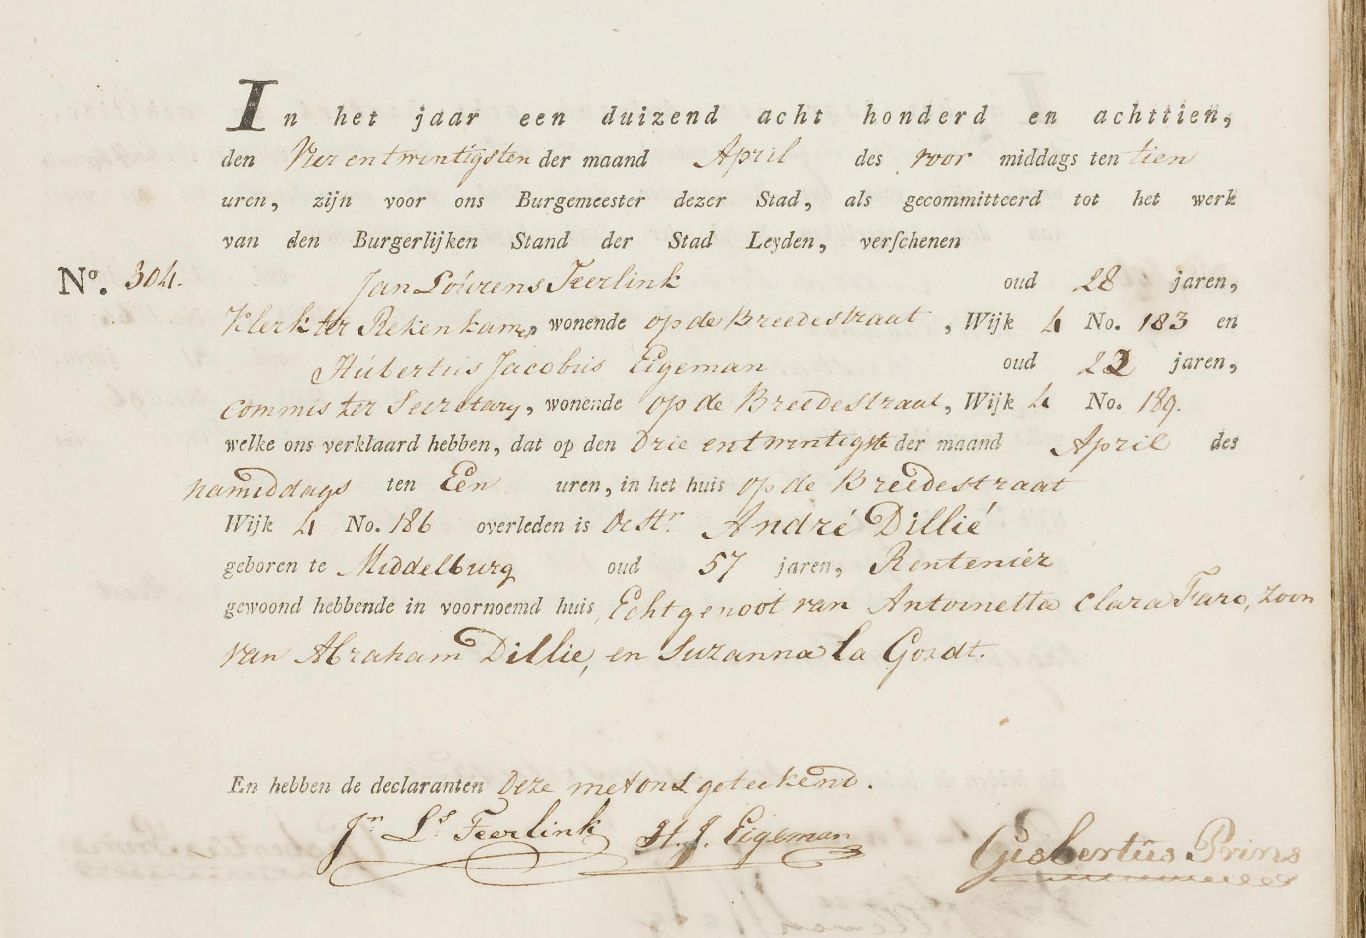 In het jaar een duizend acht honderd en achttien,
den Vier entwintigsten der maand April des voor middags ten tien
uren, zijn voor ons Burgemeester dezer Stad, als gecommitteerd tot het werk
van den Burgerlijken Stand der Stad Leyden, verschenen
No. 304. Jan Lóurens Teerlink oud 28 jaren,
Klerk ter Rekenkamer, wonende op de Breedestraat, Wijk 4 No. 183 en
Húbertús Jacobús Eigeman oud 22 jaren,
commis ter Secretary, wonende op de Breedestraat, Wijk 4 No. 189.
welke ons verklaard hebben, dat op den Drie entwintigste der maand April des
namiddags ten Een uren, in het huis op de Breedestraat
Wijk 4 No. 186 overleden is De Hr. André Dillié
geboren te Middelburg oud 57 jaren, Rentenier
gewoond hebbende in voornoemd huis, Echtgenoot van Antoinetta Clara Faro, zoon
van Abraham Dillie, en Suzanna la Gordt.
En hebben de declaranten Deze met ons geteekend.
Jn. Ls. Teerlink H. J. Eigeman Gisbertús Prins